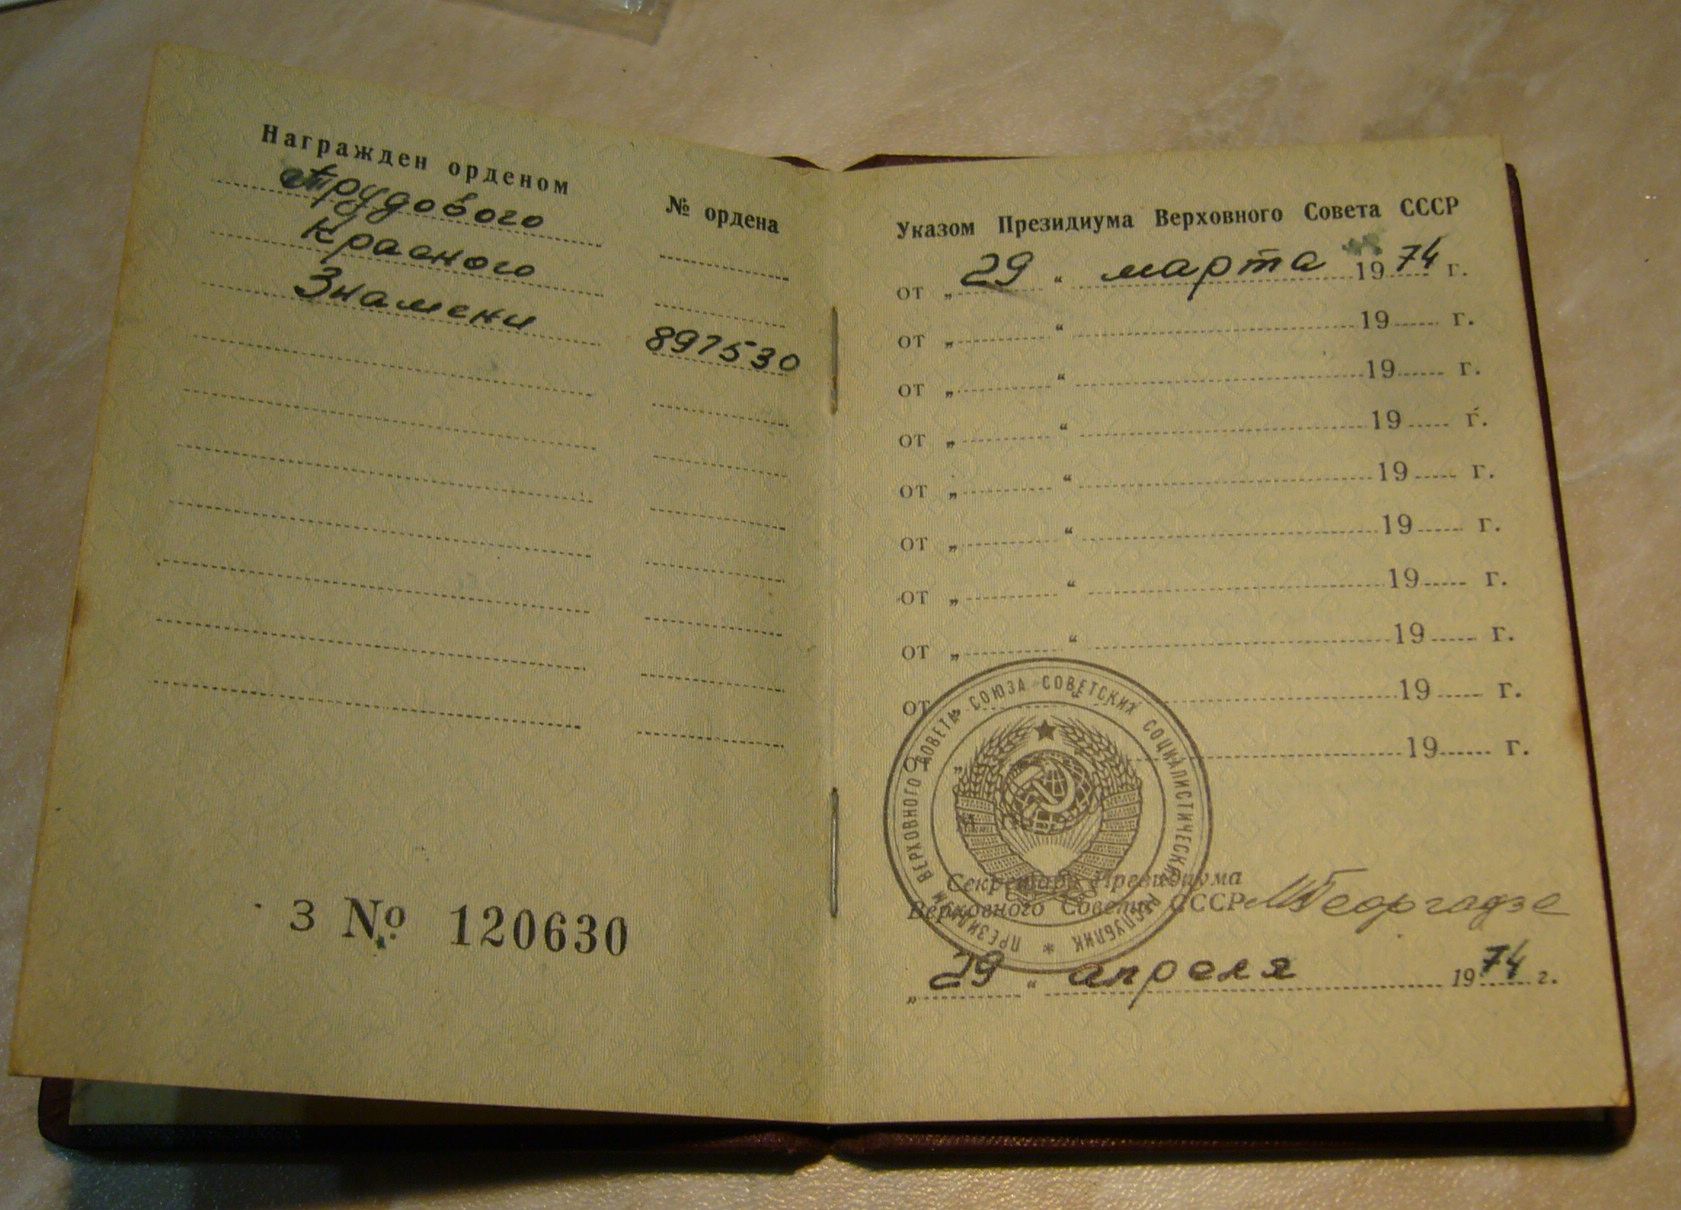 Награжден орденом № ордена
Трудового
Красного
Знамени 897530
З № 120630
Указом Президиума Верховного Совета СССР
от „ 29 “ марта 1974 г.
от „ “ 19 г.
от „ “ 19 г.
от „ “ 19 г.
от „ “ 19 г.
от „ “ 19 г.
от „ “ 19 г.
от „ “ 19 г.
от „ “ 19 г.
от „ 19 г.
ПРЕЗИДИУМ ВЕРХОВНОГО СОВЕТА СОЮЗА СОВЕТСКИХ СОЦИАЛИСТИЧЕСКИХ РЕСПУБЛИК *
Секретарь Президиума
Верховного Совета СССР МГеоргадзе
„ 29 “ апреля 1974 г.